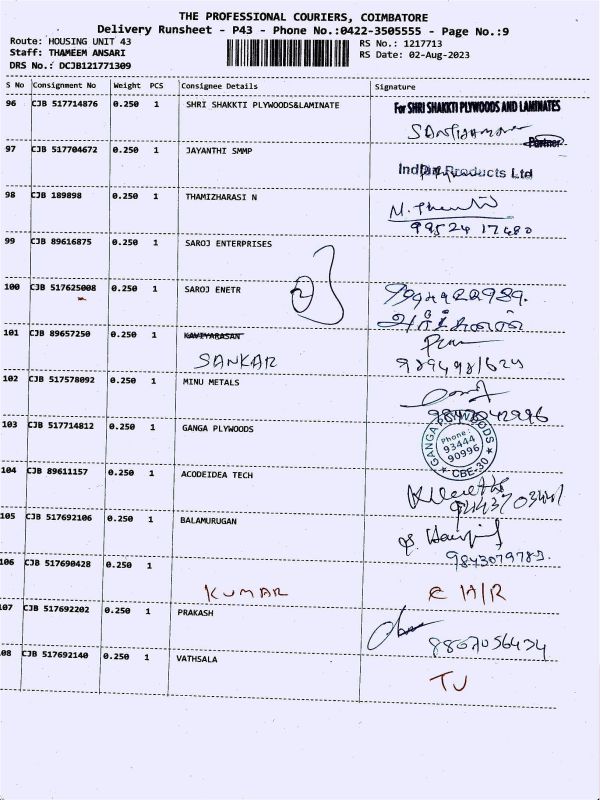 THE PROFESSIONAL COURIERS, COIMBATORE
Delivery Runsheet - P43 - Phone No.:0422-3505555 - Page No.:9
Route: HOUSING UNIT 43 RS No.: 1217713
Staff: THAMEEM ANSARI RS Date: 02-Aug-2023
DRS No.: DCJB121771309
S No Consignment No Weight PCS Consignee Details Signature
96 CJB 517714876 0.250 1 SHRI SHAKKTI PLYWOODS&LAMINATE For SHRI SHAKKTI PLYWOODS AND LAMINATES
Partner
97 CJB 517704672 0.250 1 JAYANTHI SMMP Products Ltd
98 CJB 189898 0.250 1 THAMIZHARASI N
99524 17480
99 CJB 89616875 0.250 1 SAROJ ENTERPRISES
100 CJB 517625008 0.250 1 SAROJ ENETR
101 CJB 89657250 0.250 1 KAVIYARASAN
SANKAR
102 CJB 517578092 0.250 1 MINU METALS
103 CJB 517714812 0.250 1 GANGA PLYWOODS GANGA PLYWOODS
Phone :
93444
90996
CBE-30
104 CJB 89611157 0.250 1 ACODEIDEA TECH
105 CJB 517692106 0.250 1 BALAMURUGAN
9843079783.
106 CJB 517690428 0.250 1
KUMAR C H/R
107 CJB 517692202 0.250 1 PRAKASH
108 CJB 517692140 0.250 1 VATHSALA